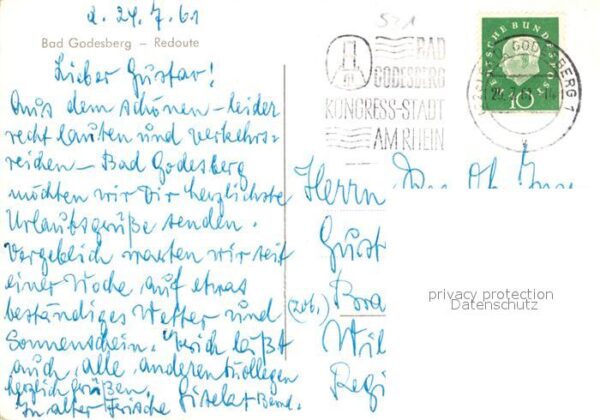 d. 24.7.61
521
Bad Godesberg – Redoute
Lieber Gustav!
Aus dem schönen – leider
recht lauten und verkehrs=
reichen – Bad Godesberg
möchten wir Dir herzlichste
Urlaubsgrüße senden.
Vergeblich warten wir seit
einer Woche, auf etwas
beständiges Wetter und
Sonnenschein. läßt
auch, alle, anderen Kollegen
herzlich grüßen.
In alter Frische Gisela + Bernd.
BAD
GODESBERG
KONGRESS-STADT
AM RHEIN
DEUTSCHE BUNDESPOST
10
GODESBERG 1
Herrn
Gust
(20b) Bra
Wil
Regi
privacy protection
Datenschutz